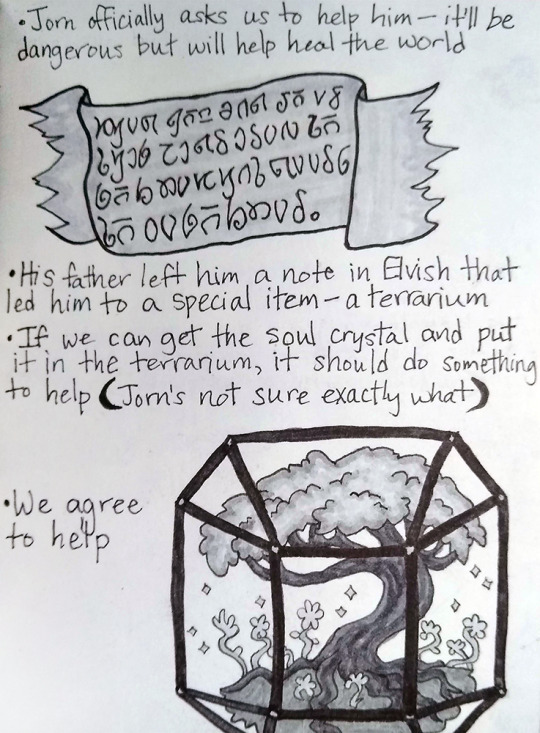 •Jorn officially asks us to help him – it'll be
dangerous but will help heal the world
•His father left him a note in Elvish that
led him to a special item – a terrarium
•If we can get the soul crystal and put
it in the terrarium, it should do something
to help (Jorn's not sure exactly what)
•We agree
to help